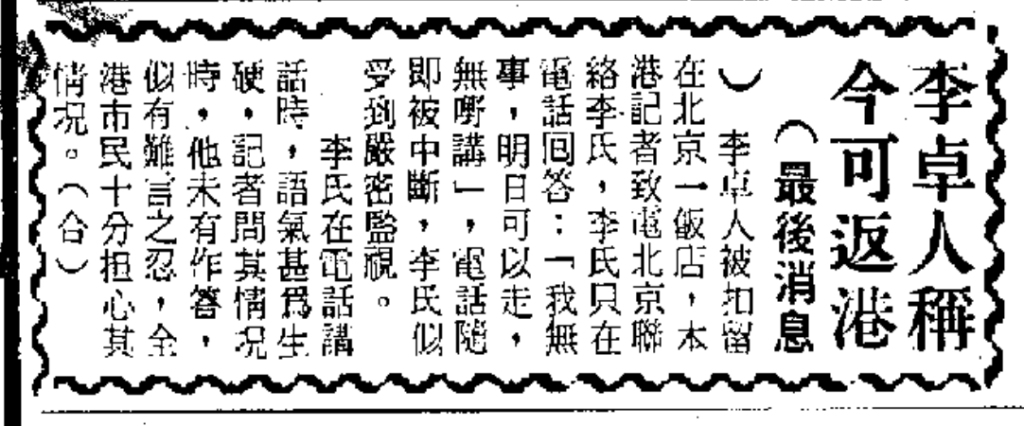 李卓人稱
今可返港
（最後消息
）　李卓人被扣留
在北京一飯店，本
港記者致電北京聯
絡李氏，李氏只在
電話回答：「我無
事，明日可以走，
無嘢講」，電話隨
即被中斷，李氏似
受到嚴密監視。
李氏在電話講
話時，語氣甚爲生
硬，記者問其情况
時，他未有作答，
似有難言之忍，全
港市民十分担心其
情况。（合）